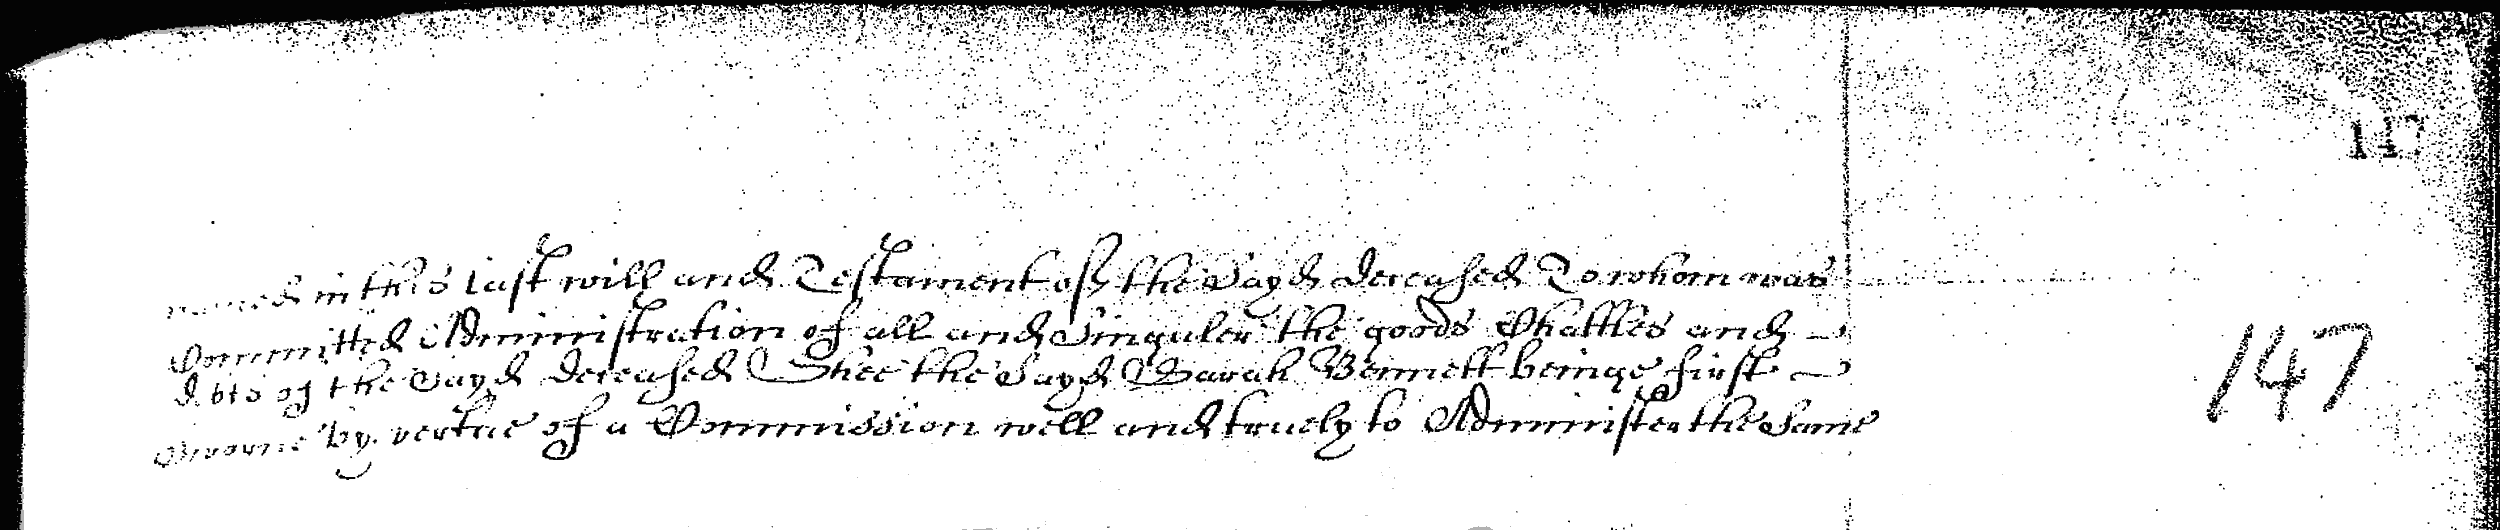 147
named in this last will and Testament of the Sayd deceased To whom was
Committed Administration of all and Singuler the goods Chattles and
debts of the Sayd deceased Shee the Sayd Sarah Bennett beinge first
Sworne by vertue of a Commission well and truely to Administer the Same
147